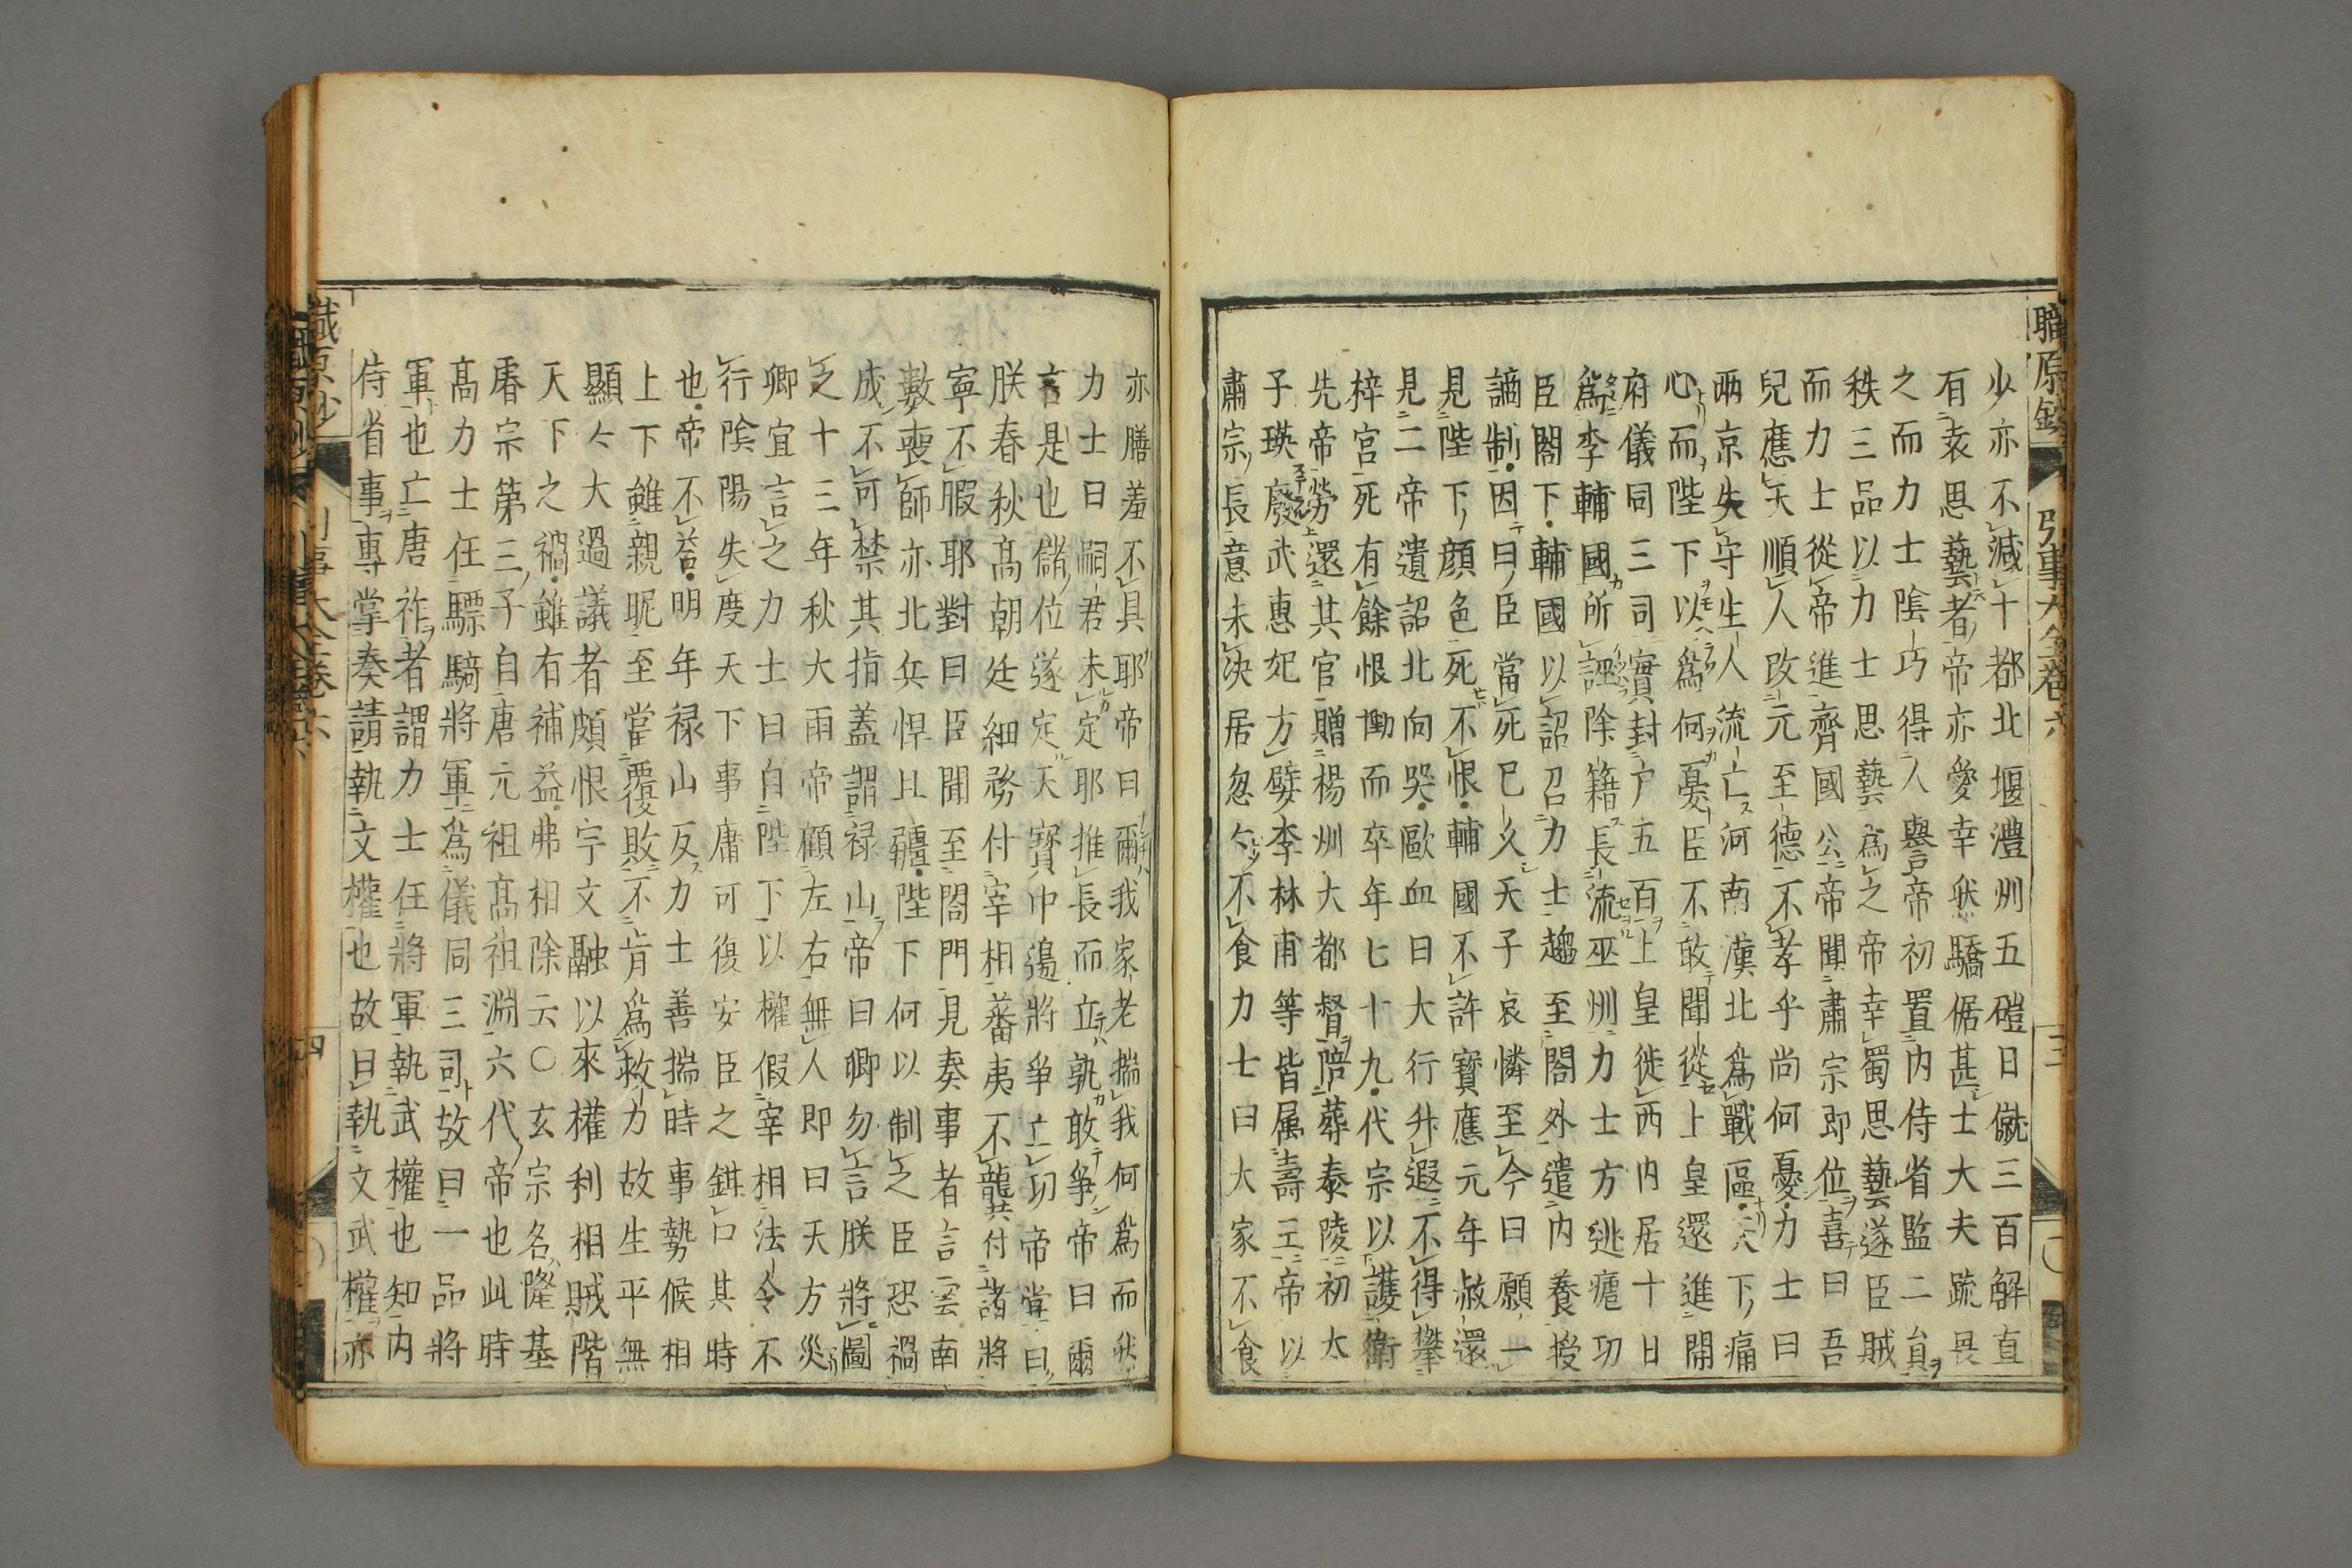 職原鈔
引事大全卷六
三
少亦不減十都北堰灃州五磑日僦三百解直
有袁思藝者帝亦愛幸然驕倨甚士大夫疏畏
之而力士陰巧得人譽帝初置内侍省監二員
秩三品以力士思藝爲之帝幸蜀思藝遂臣賊
而力士從帝進齊國公帝聞肅宗即位喜曰吾
兒應天順人改元至德不孝乎尚何憂力士曰
兩京失守生人流亡河南漢北爲戰區天下痛
心而陛下以爲何憂臣不敢聞從上皇還進開
府儀同三司實封戸五百上皇徙西内居十日
爲李輔國所誣除籍長流巫州力士方逃瘧功
臣閣下輔國以詔召力士趨至閣外遣内養授
謫制因曰臣當死已久天子哀憐至今日願一
見陛下顔色死不恨輔國不許寶應元年赦還
見二帝遺詔北向哭歐血曰大行升遐不得攀
梓宮死有餘恨慟而卒年七十九代宗以護衛
先帝勞還其官贈楊州大都督陪葬泰陵初太
子瑛廢武惠妃方嬖李林甫等皆属壽王帝以
肅宗長意未决居忽々不食力士曰大家不食
亦膳羞不具耶帝曰爾我家老揣我何爲而然
力士曰嗣君未定耶推長而立孰敢爭帝曰爾
言是也儲位遂定天寶中邊將爭立功帝嘗曰
朕春秋高朝廷細務付宰相蕃夷不龔付諸將
寧不暇耶對曰臣聞至閤門見奏事者言雲南
數喪師亦北兵悍且彊陛下何以制之臣恐禍
成不可禁其指蓋謂禄山帝曰卿勿言朕將圖
之十三年秋大雨帝顧左右無人即曰天方災
卿宜言之力士曰自陛下以權假宰相法令不
行陰陽失度天下事庸可復安臣之鉗口其時
也帝不荅明年禄山反力士善揣時事勢候相
上下雖親昵至當覆敗不肯爲救力故生平無
顯々大過議者頗恨宇文融以來權利相賊階
天下之禍雖有補益弗相除云○玄宗名隆基
睿宗第三子自唐元祖高祖淵六代帝也此時
高力士任驃騎將軍爲儀同三司故曰一品將
軍也亡唐祚者謂力士任將軍執武權也知内
侍省事專掌奏請執文權也故曰執文武權亦
職原鈔
引事大全卷六
四